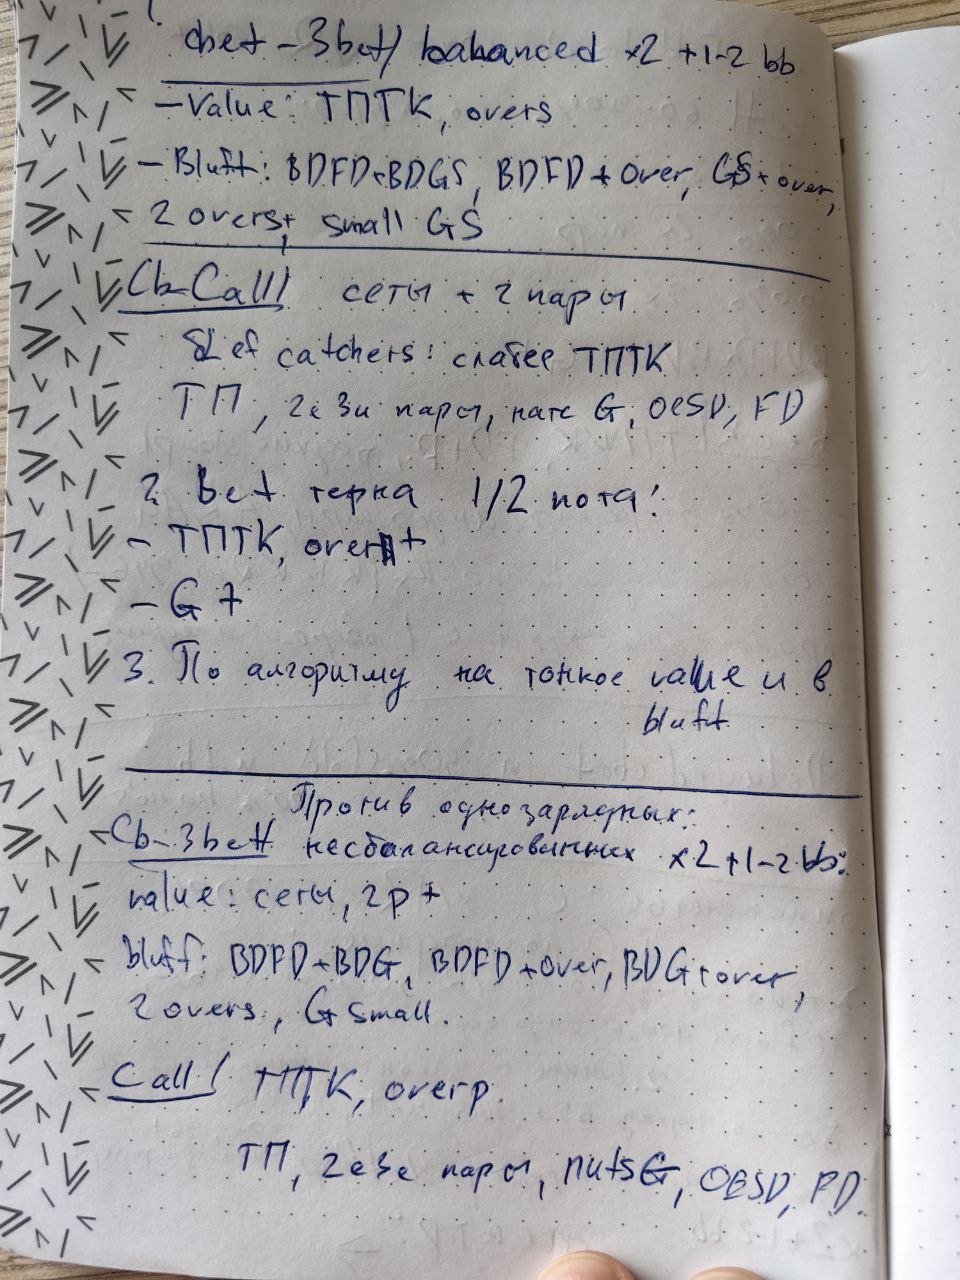 cbet - 3bet/ balanced x2 +1-2 bb
- Value: ТПТК, overs
- Bluff: BDFD+BDGS, BDFD + over, GS + over,
2 overs, small GS
Cb-Call/ сеты + 2 пары
catchers: слабее ТПТК
ТП, 2е 3и пары, натс G, OESD, FD
2 bet терна 1/2 пота:
- ТПТК, over +
- G +
3. По алгоритму на тонкое value и в
bluff
Против однозарядных:
Cb-3bet/ несбалансированных x2+1-2 bb:
value: сеты, 2p +
bluff: BDFD+BDG, BDFD+over, BDG+over,
2 overs, G small.
Call/ ТПТК, overp.
ТП, 2е 3е пары, nutsG, OESD, FD.